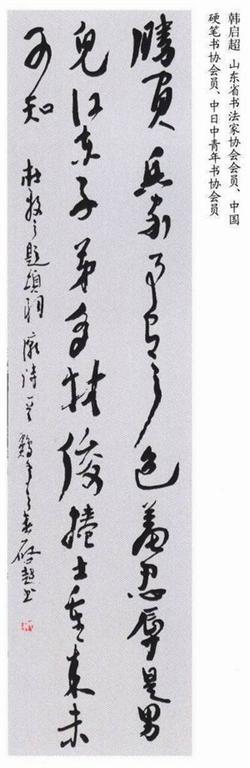 韩启超 山东省书法家协会会员、中国
硬笔书协会会员、中日中青年书协会员
勝負兵家事包羞忍辱是男
兒江東子弟多材俊捲土重來未
可知 杜牧之題項羽廟詩 之春啓超書